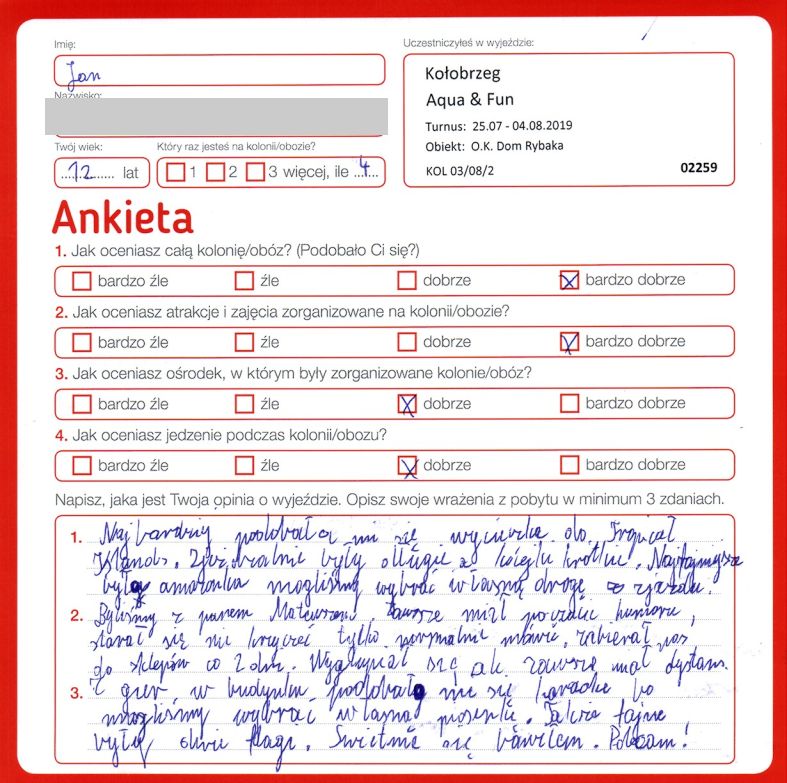 Imię:
Uczestniczyłeś w wyjeździe:
Jan
Kołobrzeg
Aqua & Fun
Turnus: 25.07 - 04.08.2019
Obiekt: O.K. Dom Rybaka
KOL 03/08/2
02259
Nazwisko:
Twój wiek:
Który raz jesteś na kolonii/obozie?
12 lat
1 2 3 więcej, ile 4
Ankieta
1. Jak oceniasz całą kolonię/obóz? (Podobało Ci się?)
bardzo źle źle dobrze bardzo dobrze
2. Jak oceniasz atrakcje i zajęcia zorganizowane na kolonii/obozie?
bardzo źle źle dobrze bardzo dobrze
3. Jak oceniasz ośrodek, w którym były zorganizowane kolonie/obóz?
bardzo źle źle dobrze bardzo dobrze
4. Jak oceniasz jedzenie podczas kolonii/obozu?
bardzo źle źle dobrze bardzo dobrze
Napisz, jaka jest Twoja opinia o wyjeździe. Opisz swoje wrażenia z pobytu w minimum 3 zdaniach.
1. Najbardziej podobała mi się wycieczka do Tropical
Islands. Zjeżdżalnie były długie a kolejki krótkie. Najfajniejsza
była amazonka mogliśmy wybrać własną drogę zjazdu.
2. Byliśmy z panem Mateuszem, zawsze miał poczucie humoru,
starał się nie krzyczeć tylko normalnie mówić, zabierał nas
do sklepów co 2 dni. Wygłupiał się ale zawsze miał dystans.
3. Z gier w budynku podobało mie się karaoke bo
mogliśmy wybrać własną piosenkę. Takie fajne
były dwie flagi. Świetnie się bawiłem. Polecam!